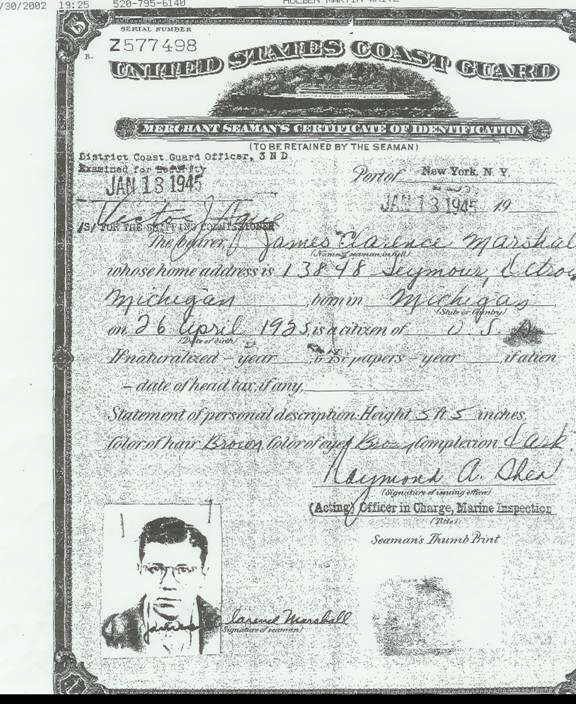 /30/2002 19:25 520-795-6140 HOLDEN MARTIN WHITE
SERIAL NUMBER
Z577498
B.
UNITED STATES COAST GUARD
MERCHANT SEAMAN'S CERTIFICATE OF IDENTIFICATION
(TO BE RETAINED BY THE SEAMAN)
District Coast Guard Officer, 3 N D
Examined for Security
JAN 13 1945
Port of New York, N. Y.
JAN 13 1945 19
Victor J
/S/ FOR THE SHIPPING COMMISSIONER
The bearer, James Clarence Marshal
(Name of seaman in full)
whose home address is 13848 Seymour, Detroi
Michigan, born in Michigan
(State or Country)
on 26 April 1925 is a citizen of U. S. A
(Date of birth)
If naturalized - year or 1st papers - year if alien
- date of head tax, if any,
Statement of personal description. Height 5 ft 5 inches,
Color of hair Brown Color of eyes Bro Complexion Dark
Raymond A. Shea
(Signature of issuing officer)
(Acting) Officer in Charge, Marine Inspection
(Title)
Seaman's Thumb Print
James Clarence Marshall
(Signature of seaman)